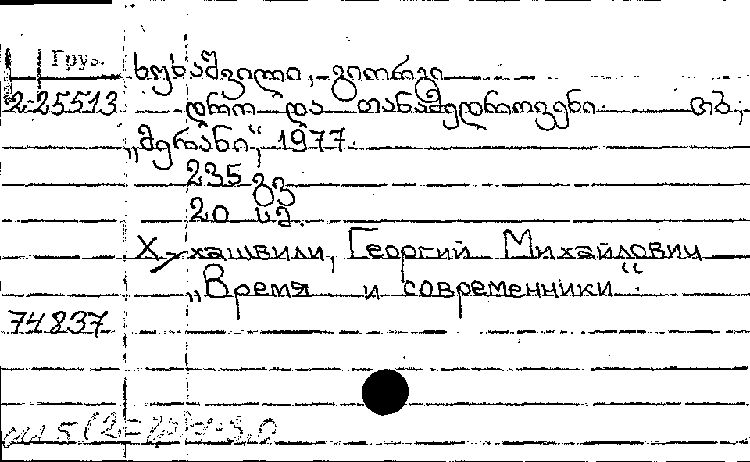 Груз.
ხუხაშვილი, გიორგი
2-25513 დრო და თანამედროვენი. თბ.,
„მერანი“, 1977.
235 გვ
20 სმ.
Хухашвили, Георгий Михайлович
„Время и современники“.
74837